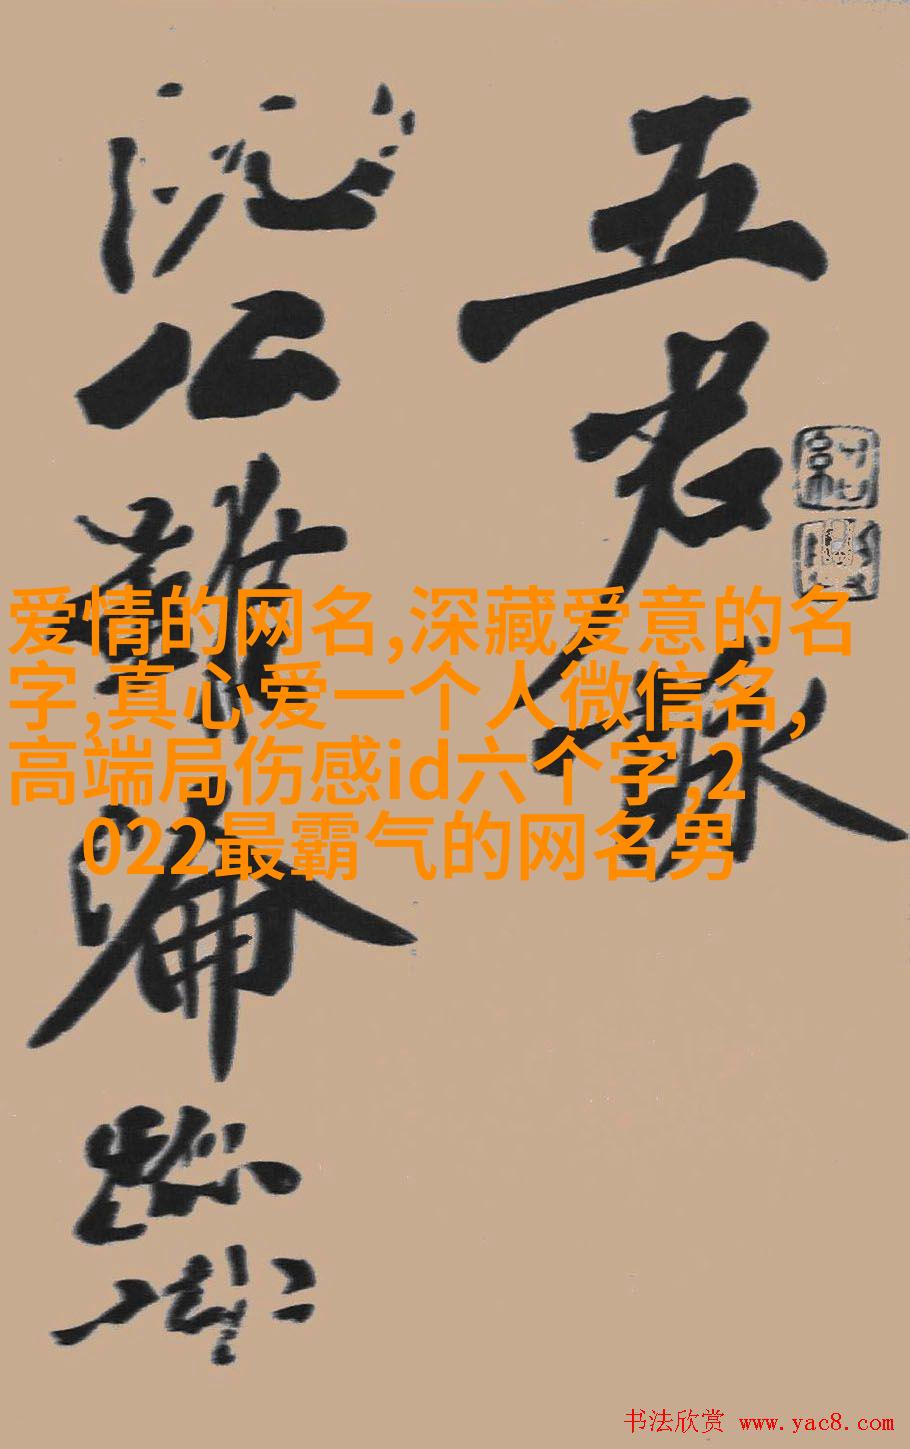 五君詠
阮公雖淪跡
爱情的网名,深藏爱意的名
字,真心爱一个人微信名,
高端局伤感id六个字,2
022最霸气的网名男
书法欣赏 www.yac8.com